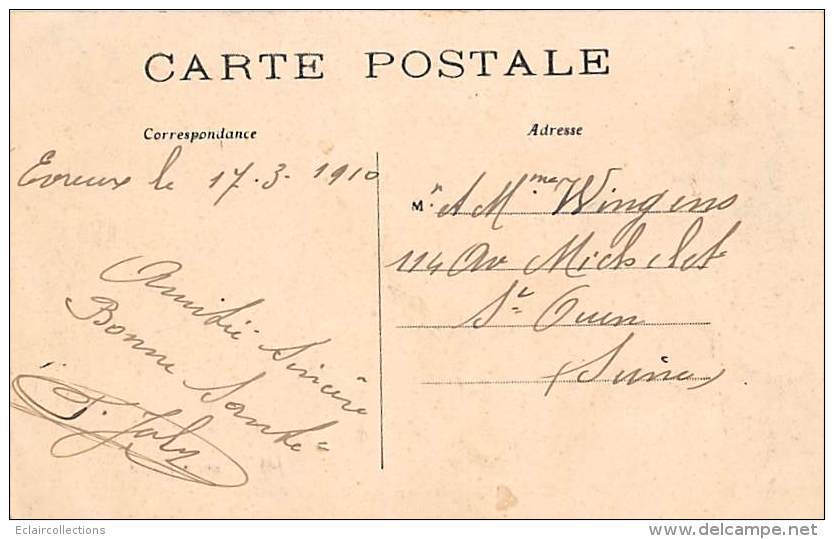 CARTE POSTALE
Correspondance
Adresse
Evreux le 17.3.1910
Amitié Sincère
Bonne Santé
Joly
Mr & Mme Wingens
114 Av Michelet
St Ouen
(Seine)
Eclaircollections
www.delcampe.net